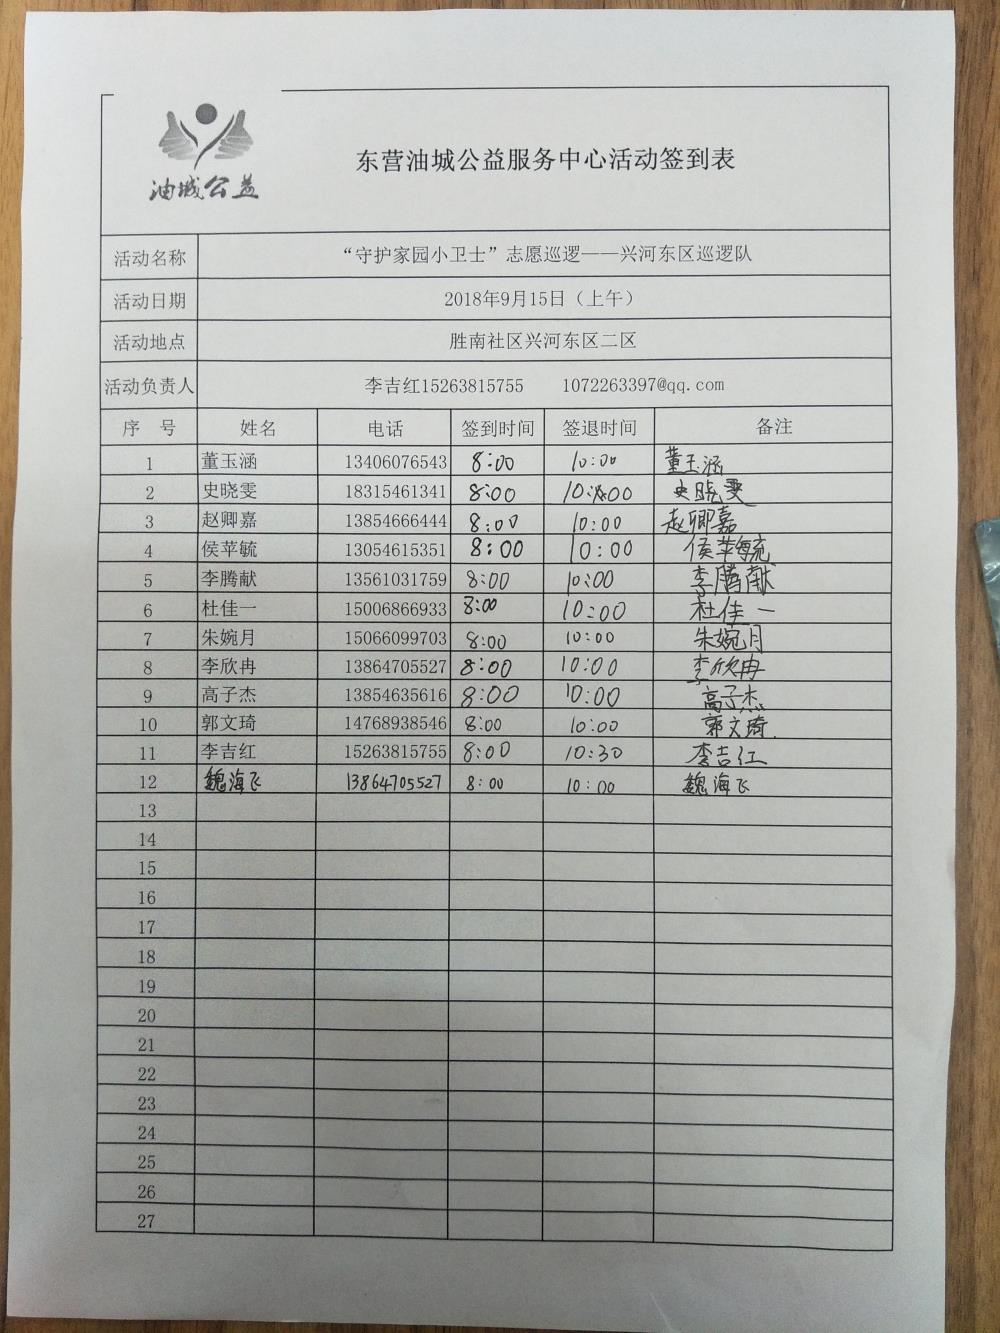 油城公益
东营油城公益服务中心活动签到表
活动名称 “守护家园小卫士”志愿巡逻——兴河东区巡逻队
活动日期 2018年9月15日（上午）
活动地点 胜南社区兴河东区二区
活动负责人 李吉红15263815755 1072263397@qq.com
序 号 姓名 电话 签到时间 签退时间 备注
1 董玉涵 13406076543 8:00 10:00 董玉涵
2 史晓雯 18315461341 8:00 10:00 史晓雯
3 赵卿嘉 13854666444 8:00 10:00 赵卿嘉
4 侯苹毓 13054615351 8:00 10:00 侯苹毓
5 李腾献 13561031759 8:00 10:00 李腾献
6 杜佳一 15006866933 8:00 10:00 杜佳一
7 朱婉月 15066099703 8:00 10:00 朱婉月
8 李欣冉 13864705527 8:00 10:00 李欣冉
9 高子杰 13854635616 8:00 10:00 高子杰
10 郭文琦 14768938546 8:00 10:00 郭文琦.
11 李吉红 15263815755 8:00 10:30 李吉红
12 魏海飞 13864705527 8:00 10:00 魏海飞
13
14
15
16
17
18
19
20
21
22
23
24
25
26
27